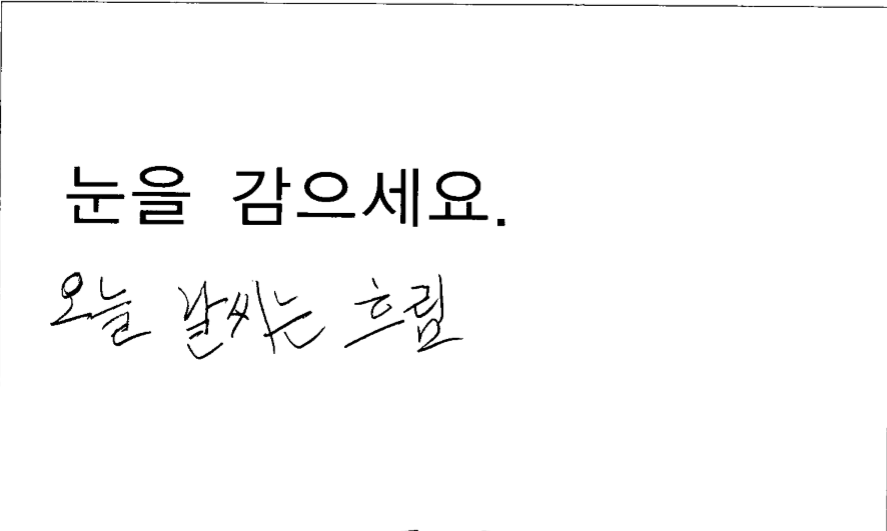 눈을 감으세요.
오늘 날씨는 흐림